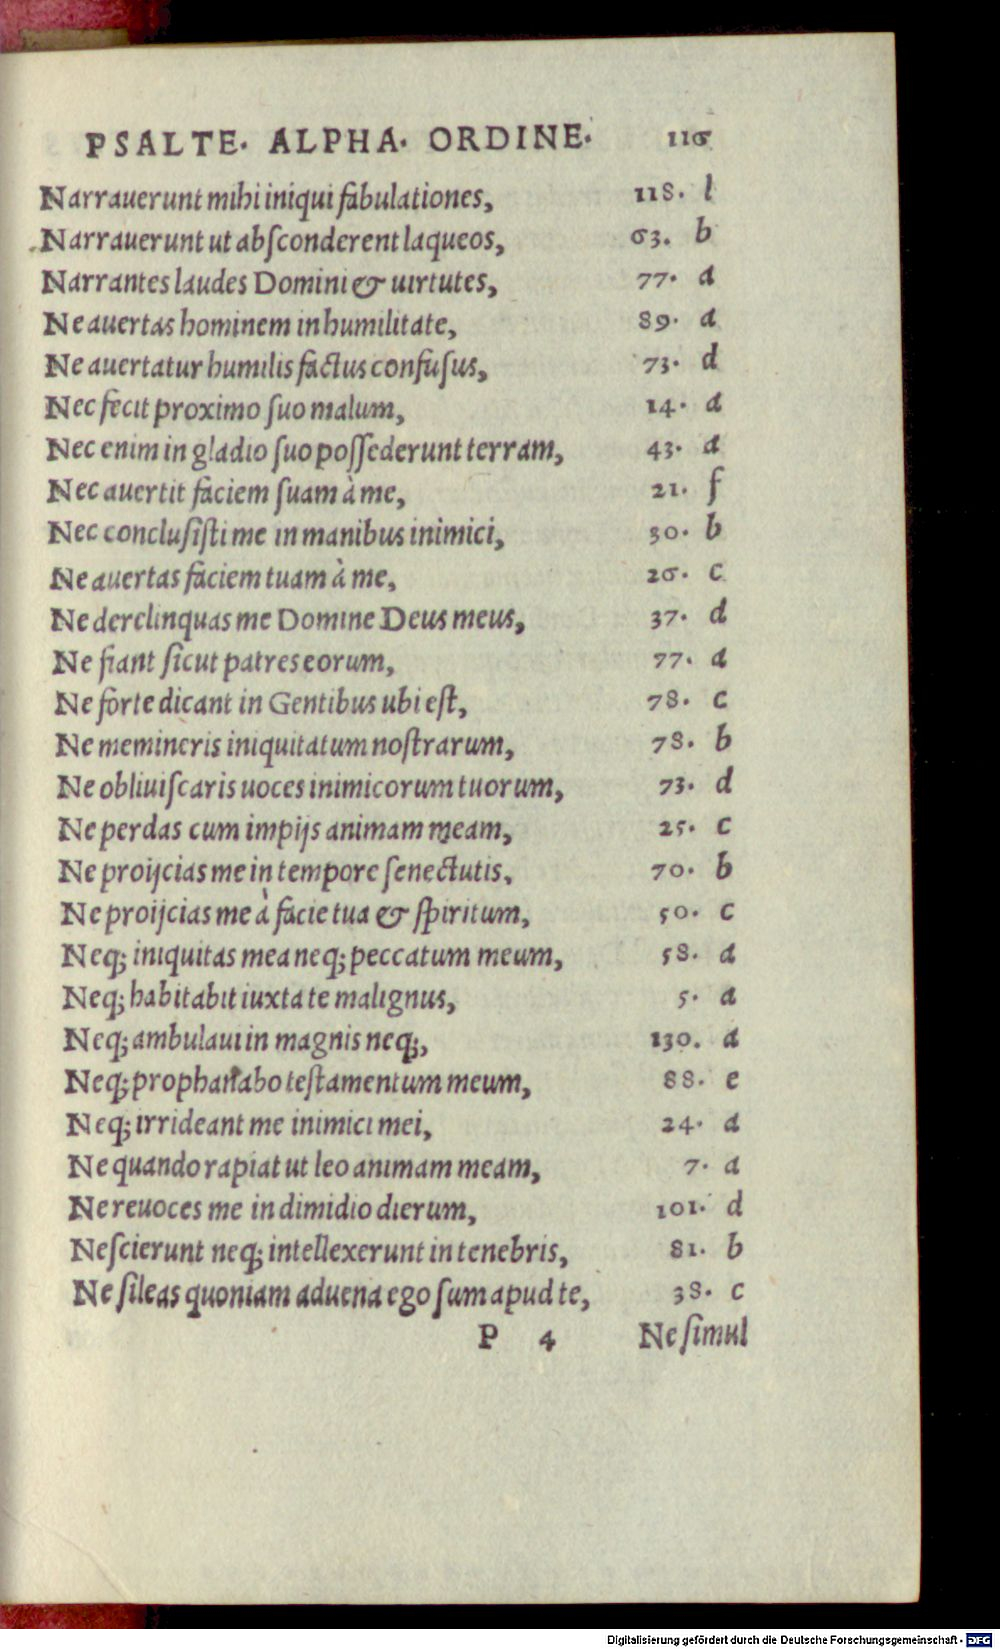 PSALTE. ALPHA. ORDINE. 116
Narrauerunt mihi iniqui fabulationes, 118. l
Narrauerunt ut absconderent laqueos, 63. b
Narrantes laudes Domini & uirtutes, 77. a
Ne auertas hominem in humilitate, 89. a
Ne auertatur humilis factus confusus, 73. d
Nec fecit proximo suo malum, 14. a
Nec enim in gladio suo possederunt terram, 43. a
Nec auertit faciem suam à me, 21. f
Nec conclusisti me in manibus inimici, 30. b
Ne auertas faciem tuam à me, 26. c
Ne derelinquas me Domine Deus meus, 37. d
Ne fiant sicut patres eorum, 77. a
Ne forte dicant in Gentibus ubi est, 78. c
Ne memineris iniquitatum nostrarum, 78. b
Ne obliuiscaris uoces inimicorum tuorum, 73. d
Ne perdas cum impijs animam meam, 25. c
Ne proijcias me in tempore senectutis, 70. b
Ne proijcias me à facie tua & spiritum, 50. c
Neq; iniquitas mea neq; peccatum meum, 58. a
Neq; habitabit iuxta te malignus, 5. a
Neq; ambulaui in magnis neq;, 130. a
Neq; prophanabo testamentum meum, 88. e
Neq; irrideant me inimici mei, 24. a
Ne quando rapiat ut leo animam meam, 7. a
Ne reuoces me in dimidio dierum, 101. d
Nescierunt neq; intellexerunt in tenebris, 81. b
Ne sileas quoniam aduena ego sum apud te, 38. c
P 4 Ne simul
Digitalisierung gefördert durch die Deutsche Forschungsgemeinschaft - DFG